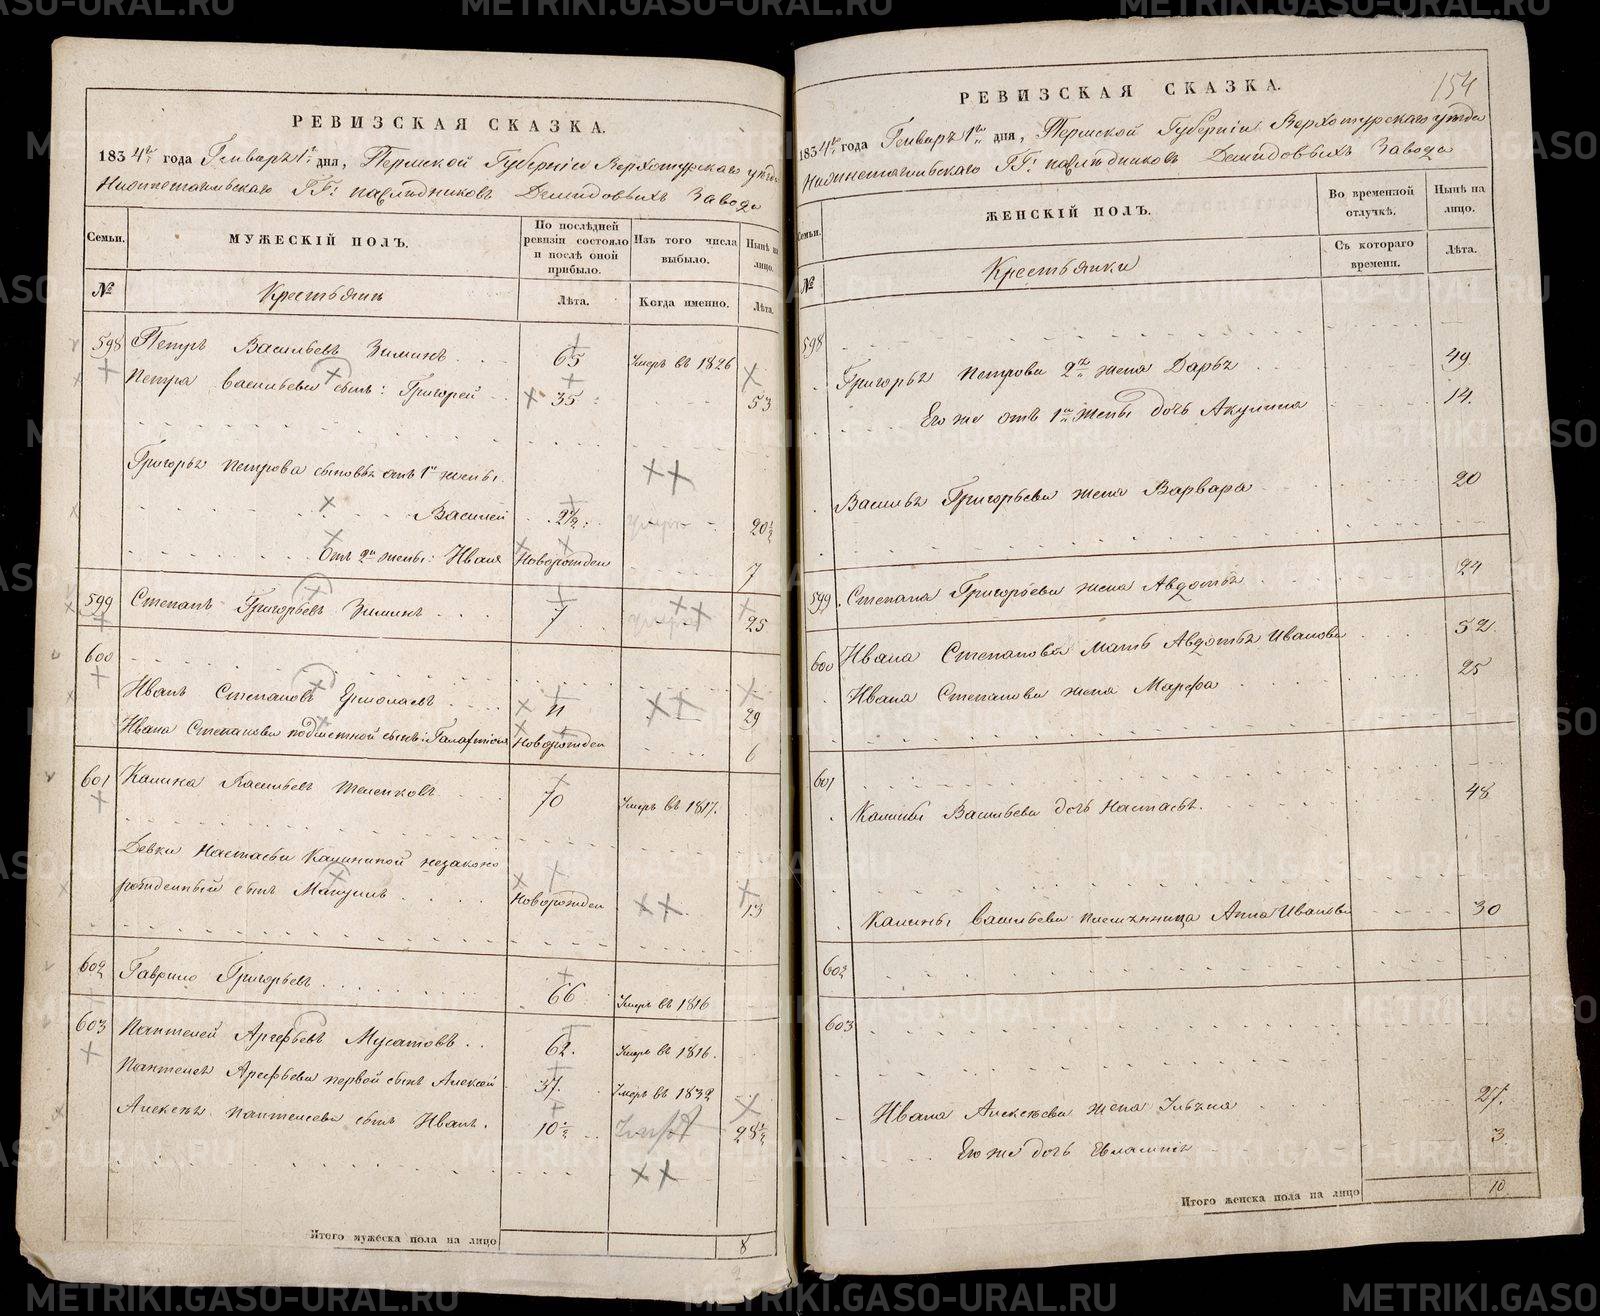 РЕВИЗСКАЯ СКАЗКА.
1834го года Генваря 1го дня, Пермской Губернiи Верхотурскаго уезда
Нижнетагильскаго ГГ: наследниковъ Демидовыхъ Завода
Семьи.
МУЖЕСКIЙ ПОЛЪ.
По последней ревизiи состояло и после оной прибыло.
Изъ того числа выбыло.
Ныне на лицо.
№
Крестьянъ
Лѣта.
Когда именно.
Лѣта.
598 Петръ Васильевъ Зиминъ 65 Умеръ въ 1826
Петра Васильева сынъ: Григорей 35 53
Григорья Петрова сыновья отъ 1й жены.
Василей 2½ 20½
Отъ 2й жены: Иванъ Новорожден 7
599 Степанъ Григорьевъ Зиминъ 7 25
600
Иванъ Степановъ Ермолаевъ 11 29
Ивана Степанова подметной сынъ: Новорожден 6
601 Калина Васильевъ 70 Умеръ въ 1817.
Девки Настасьи Калининой незаконно
рожденный сынъ Новорожден 13
602 Гаврило Григорьевъ 66 Умеръ въ 1816
603 Пантелей Арефьевъ Мусатовъ 62. Умеръ въ 1816.
Пантелея Арефьева первой сынъ Алексей 37. Умеръ въ 1832
Алексея Пантелеева сынъ Иванъ. 10½ 28½
Итого мужеска пола на лицо 8
154
РЕВИЗСКАЯ СКАЗКА.
1834го года Генваря 1го дня, Пермской Губернiи Верхотурскаго уезда
Нижнетагильскаго ГГ: наследниковъ Демидовыхъ Завода
Семьи.
ЖЕНСКIЙ ПОЛЪ.
Во временной отлучкѣ.
Нынѣ на лицо.
№
Крестьянки
Съ котораго времени.
Лѣта.
598
Григорья Петрова 2я жена Дарья 49
Его же отъ 1й жены дочь Акулина 14.
Василья Григорьева жена Варвара 20
599 Степана Григорьева жена Авдотья 24
600 Ивана Степанова мать Авдотья Иванова 52.
Ивана Степанова жена Марфа 25
601
Калины Васильева дочь Настасья. 48
Калины Васильева племянница Анна Иванова 30
602
603
Ивана Алексеева жена Ульяна 27.
Его же дочь Евлампия 3
Итого женска пола на лицо 10
METRIKI.GASO-URAL.RU